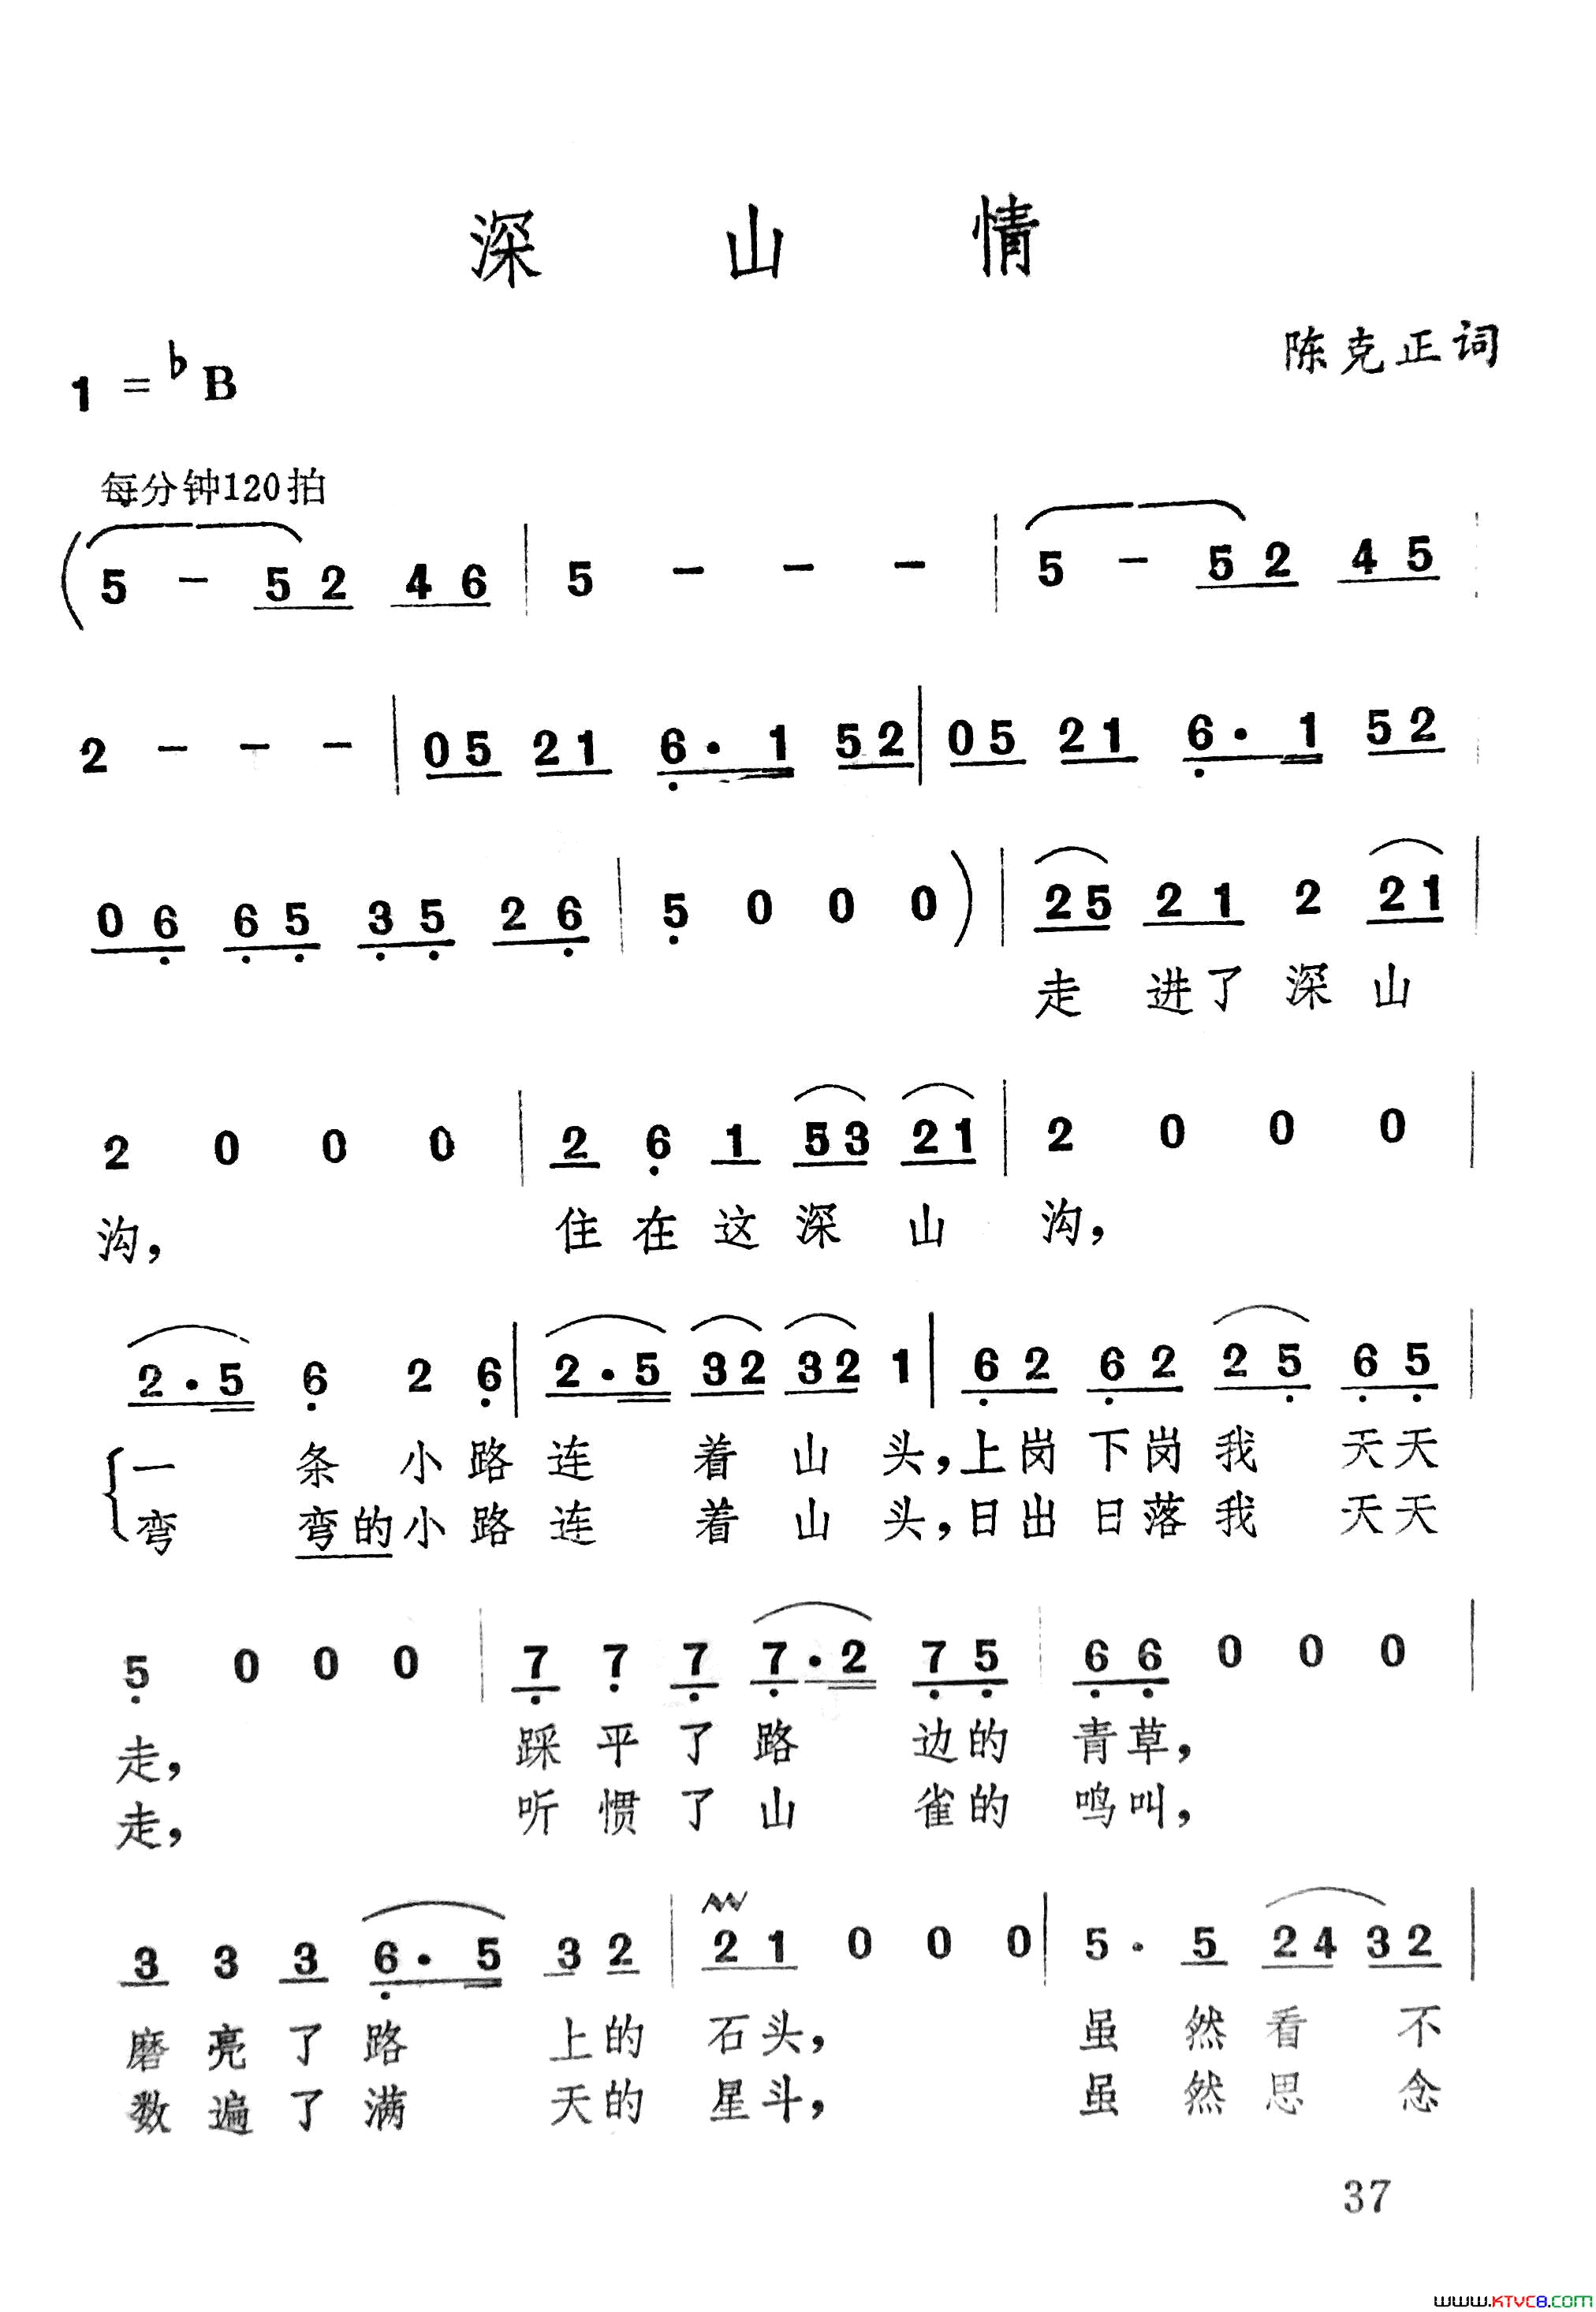 深 山 情
陈克正词
1 = ♭B
每分钟120拍
( 5 － 5 2 4 6 | 5 － － － | 5 － 5 2 4 5 |
2 － － － | 0 5 2 1 6 · 1 5 2 | 0 5 2 1 6 · 1 5 2
0 6 6 5 3 5 2 6 | 5 0 0 0 ) | 2 5 2 1 2 2 1 |
走 进了 深 山
2 0 0 0 | 2 6 1 5 3 2 1 | 2 0 0 0 |
沟， 住 在 这 深 山 沟，
2 · 5 6 2 6 | 2 · 5 3 2 3 2 1 | 6 2 6 2 2 5 6 5 |
一 条 小 路 连 着 山 头，上岗 下岗 我 天天
弯 弯的 小 路 连 着 山 头，日出 日落 我 天天
5 0 0 0 | 7 7 7 7 · 2 7 5 | 6 6 0 0 0 |
走， 踩 平 了 路 边的 青草，
走， 听 惯 了 山 雀的 鸣叫，
3 3 3 6 · 5 3 2 | 2 1 0 0 0 | 5 · 5 2 4 3 2 |
磨 亮 了 路 上的 石头， 虽 然 看 不
数 遍 了 满 天的 星斗， 虽 然 思 念
37
www.KTVC8.COM